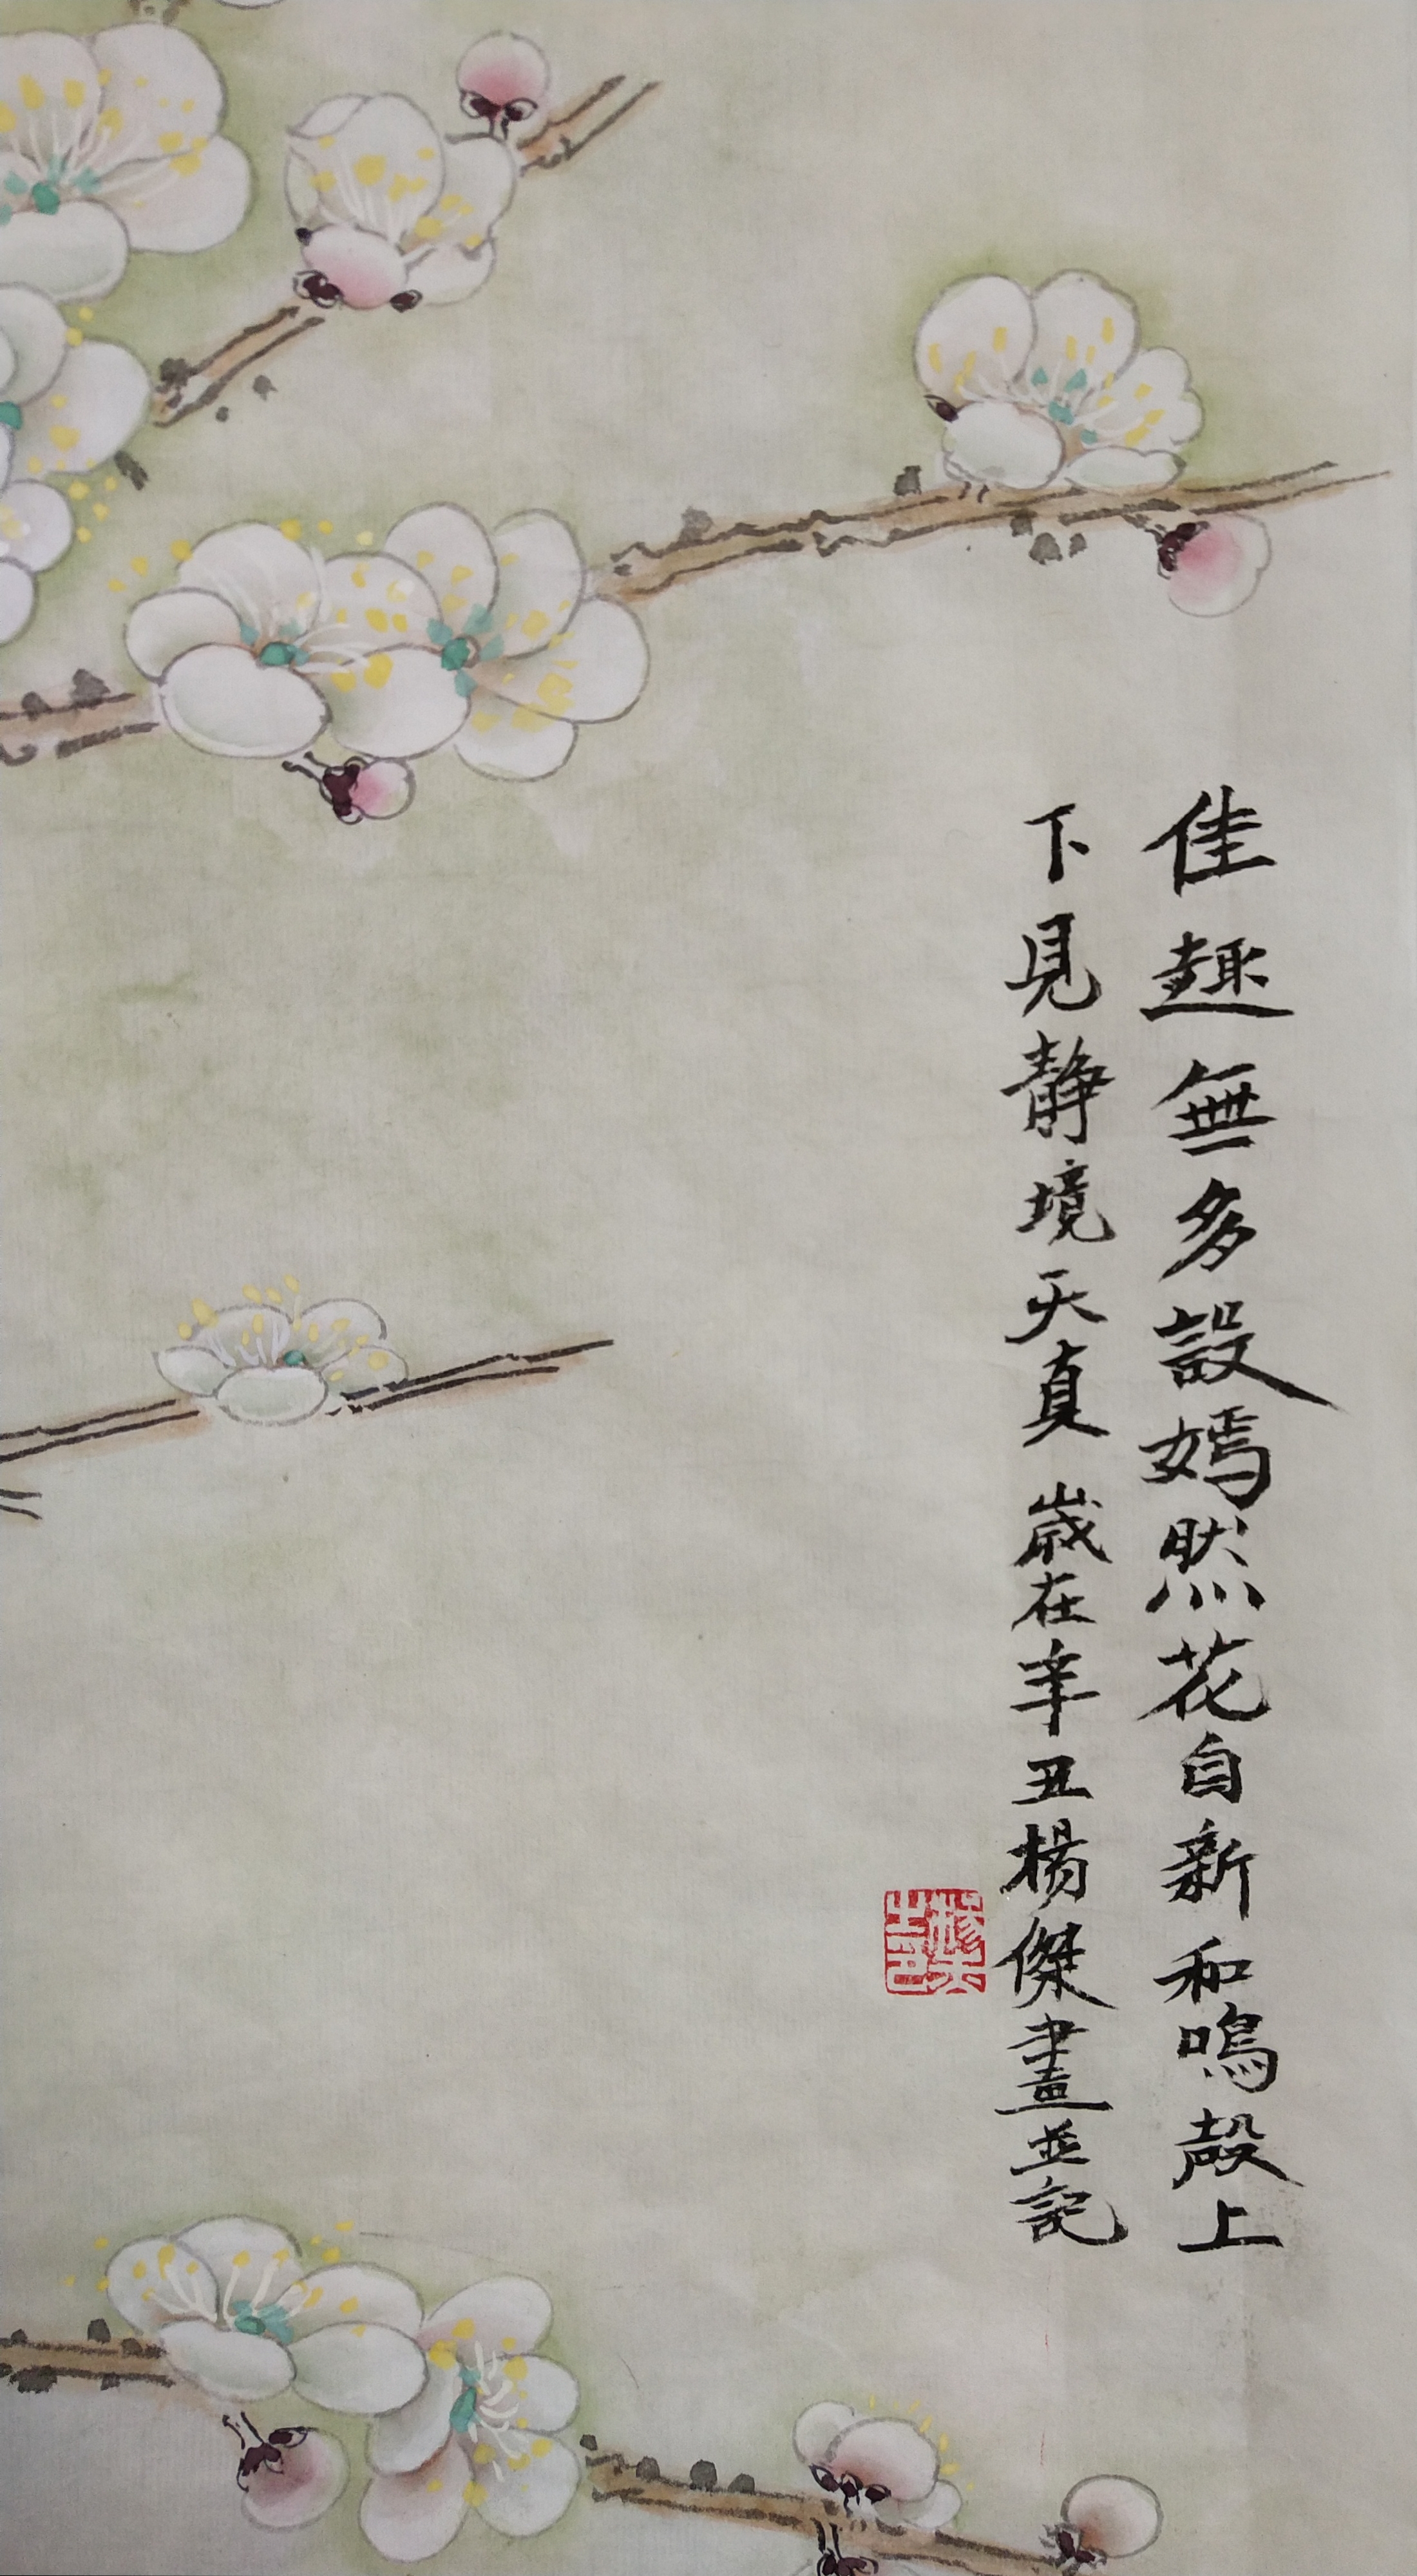 佳趣無多設嫣然花自新和鳴殸上
下見静境天真 歲在辛丑楊傑畫並記